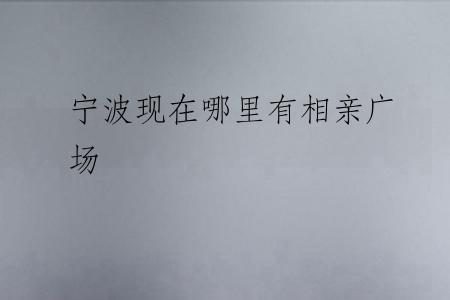 宁波现在哪里有相亲广
场